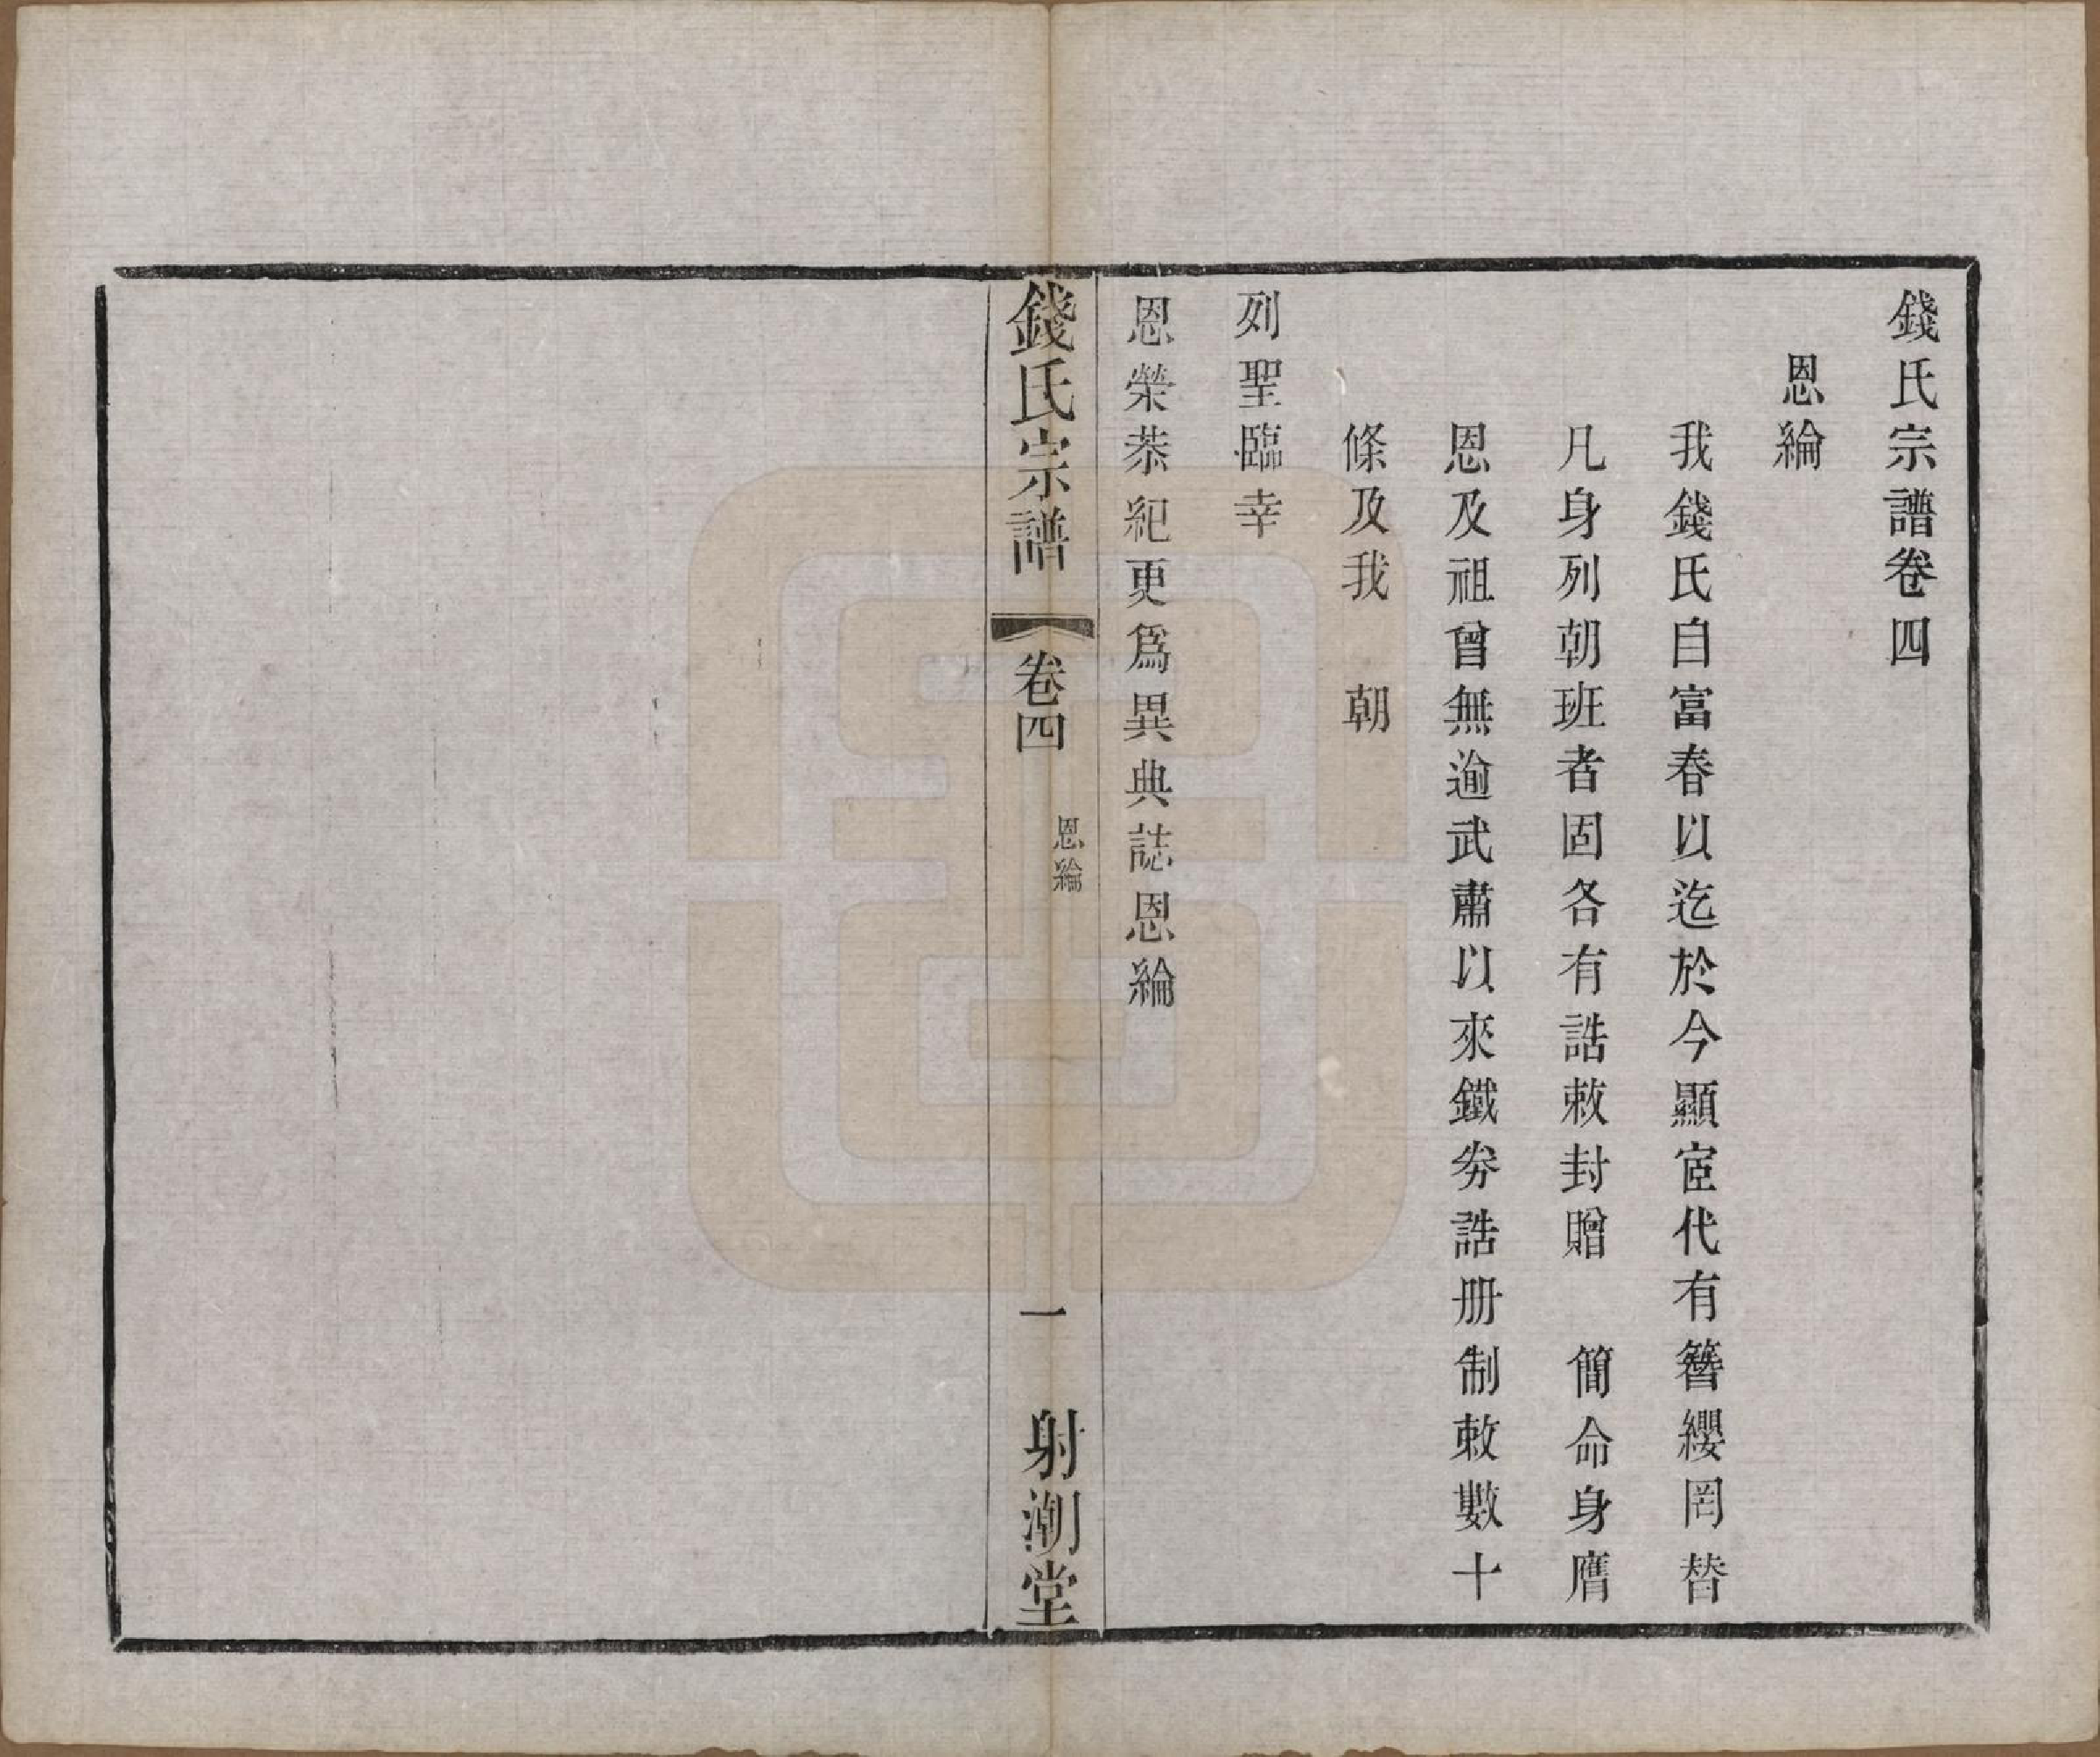 錢氏宗譜卷四
恩綸
我錢氏自富春以迄於今顯宦代有簪纓罔替
凡身列朝班者固各有誥敕封贈　簡命身膺
恩及祖曾無逾武肅以來鐵劵誥册制敕數十
條及我　朝
列聖臨幸
恩榮恭紀更爲異典誌恩綸
錢氏宗譜
卷四
恩綸
一
射潮堂